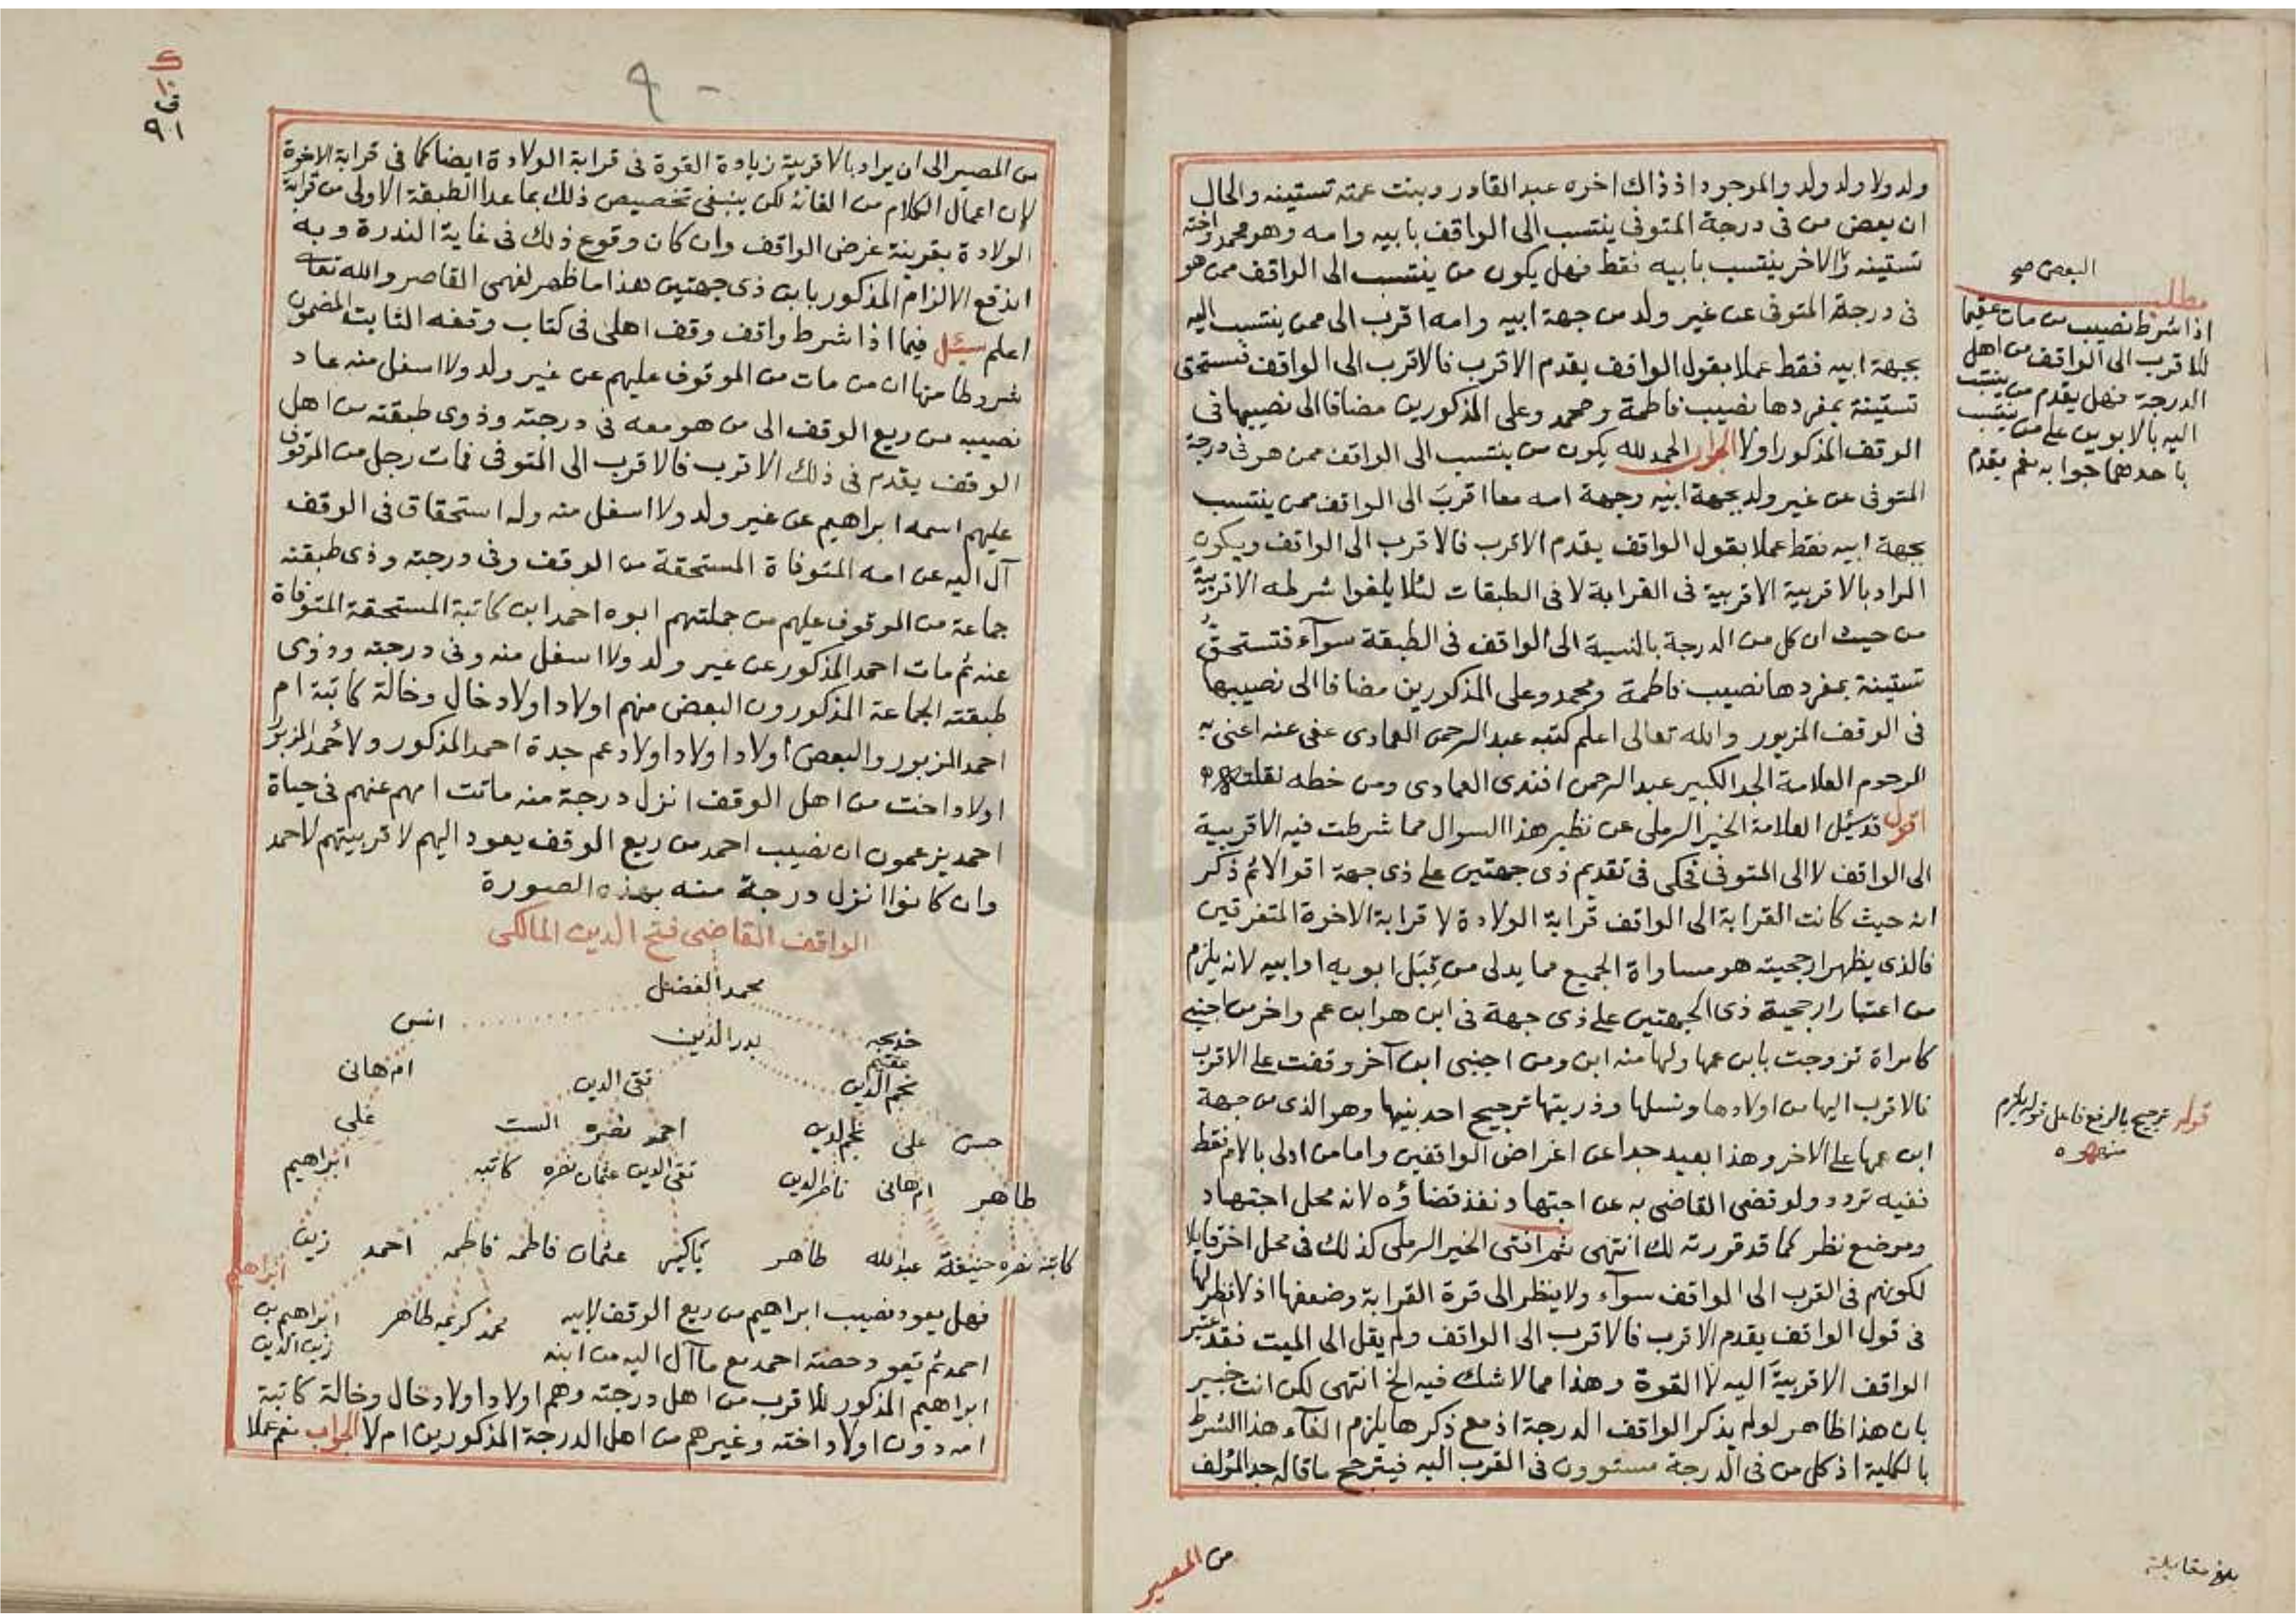 ولد ولا ولد ولد والموجود اذ ذاك اخوه عبد القادر وبنت عمته تستينه والحال
ان بعض من فى درجة المتوفى ينتسب الى الواقف بابيه وامه وهو محمد واخته
تستينه والاخر ينتسب بابيه فقط فهل يكون من ينتسب الى الواقف ممن هو
فى درجة المتوفى عن غير ولد من جهة ابيه وامه اقرب الى ممن ينتسب اليه
بجهة ابيه فقط عملا بقول الواقف يقدم الاقرب فالاقرب الى الواقف فتستحق
تستينة بمفردها نصيب فاطمة ومحمد وعلى المذكورين مضافا الى نصيبها فى
الوقف المذكور اولا الجواب الحمد لله يكون من ينتسب الى الواقف ممن هو فى درجة
المتوفى عن غير ولد بجهة ابيه وجهة امه معا اقرب الى الواقف ممن ينتسب
بجهة ابيه فقط عملا بقول الواقف يقدم الاقرب فالاقرب الى الواقف ويكون
المراد بالاقربية الاقربية فى القرابة لا فى الطبقات لئلا يلغوا شرطه الاقربية
من حيث ان كل من الدرجة بالنسبة الى الواقف فى الطبقة سوآء فتستحق
تستينة بمفردها نصيب فاطمة ومحمد وعلى المذكورين مضافا الى نصيبها
فى الوقف المزبور والله تعالى اعلم كتبه عبد الرحمن العمادى عفى عنه اعنى به
المرحوم العلامة الجد الكبير عبد الرحمن افندى العمادى ومن خطه نقلت
اقول قد سئل العلامة الخير الرملى عن نظير هذا السوال مما شرطت فيه الاقربية
الى الواقف لا الى المتوفى فحكى فى تقديم ذى جهتين على ذى جهة اقوالا ثم ذكر
انه حيث كانت القرابة الى الواقف قرابة الولادة لا قرابة الاخوة المتفرقين
فالذى يظهر ارجحيته هو مساواة الجميع مما يدلى من قبل ابويه او ابيه لانه يلزم
من اعتبار ارجحية ذى الجهتين على ذى جهة فى ابن هو ابن عم واخر من اجنبى
كامراة تزوجت بابن عمها ولها منه ابن ومن اجنبى ابن آخر وقفت على الاقرب
فالاقرب اليها من اولادها ونسلها وذريتها ترجيح احد بنيها وهو الذى من جهة
ابن عمها على الاخر وهذا بعيد جدا عن اغراض الواقفين واما من ادلى بالام فقط
ففيه تردد ولو قضى القاضى به عن اجتهاد نفذ قضاؤه لانه محل اجتهاد
وموضع نظر كما قد قررته لك انتهى ثم افتى الخير الرملى كذلك فى محل اخر قايلا
لكونهم فى القرب الى الواقف سوآء ولا ينظر الى قوة القرابة وضعفها اذ لا نظر لها
فى قول الواقف يقدم الاقرب فالاقرب الى الواقف ولم يقل الى الميت فقد اعتبر
الواقف الاقربية اليه لا القوة وهذا مما لا شك فيه الخ انتهى لكن انت خبير
بان هذا ظاهر لو لم يذكر الواقف الدرجة اذ مع ذكرها يلزم الغآء هذا الشرط
بالكلية اذ كل من فى الدرجة مستوون فى القرب اليه فيترجح ما قاله جد المؤلف
من المصير
البعض صح
مطلب
اذا شرط نصيب من مات عقيما
للاقرب الى الواقف من اهل
الدرجة فهل يقدم من ينتسب
اليه بالابوين على من ينتسب
باحدهما جوابه نعم يقدم
قوله ترجيح بالرفع فاعل قوله يلزم
منه
بلغ مقابلة
٩٠
من المصير الى ان يراد بالاقربية زيادة القوة فى قرابة الولادة ايضا كما فى قرابة الاخوة
لان اعمال الكلام من الغائه لكن ينبغى تخصيص ذلك بما عدا الطبقة الاولى من قرابة
الولادة بقرينة غرض الواقف وان كان وقوع ذلك فى غاية الندرة وبه
اندفع الالزام المذكور بابن ذى جهتين هذا ما ظهر لفهمى القاصر والله تعالى
اعلم سئل فيما اذا شرط واقف وقف اهلى فى كتاب وقفه الثابت المضمون
شروطا منها ان من مات من الموقوف عليهم عن غير ولد ولا اسفل منه عاد
نصيبه من ريع الوقف الى من هو معه فى درجته وذوى طبقته من اهل
الوقف يقدم فى ذلك الاقرب فالاقرب الى المتوفى فمات رجل من الموقوف
عليهم اسمه ابراهيم عن غير ولد ولا اسفل منه وله استحقاق فى الوقف
آل اليه عن امه المتوفاة المستحقة من الوقف وفى درجته وذى طبقته
جماعة من الموقوف عليهم من جملتهم ابوه احمد ابن كاتبة المستحقة المتوفاة
عنه ثم مات احمد المذكور عن غير ولد ولا اسفل منه وفى درجته وذوى
طبقته الجماعة المذكورون البعض منهم اولاد اولاد خال وخالة كاتبة ام
احمد المزبور والبعض اولاد اولاد اولاد عم جدة احمد المذكور ولاحمد المزبور
اولاد اخت من اهل الوقف انزل درجة منه ماتت امهم عنهم فى حياة
احمد يزعمون ان نصيب احمد من ريع الوقف يعود اليهم لاقربيتهم لاحمد
وان كانوا انزل درجة منه بهذه الصورة
الواقف القاضى فتح الدين المالكى
محمد الفضل
خديجه عقيم بدر الدين انس
نجم الدين تقى الدين ام هانى
حسن على نجم الدين احمد نصره الست على
طاهر ام هانى ناصر الدين تقى الدين عثمان نصره كاتبه ابراهيم
كاتبة نصره حنيفة عبد الله طاهر عثمان فاطمه فاطمه احمد زين
ابراهيم
فهل يعود نصيب ابراهيم من ريع الوقف لابيه محمد كريمه طاهر ابراهيم بن
زين الدين
احمد ثم تعود حصته احمد مع ما آل اليه من ابنه
ابراهيم المذكور للاقرب من اهل درجته وهم اولاد اولاد خال وخالة كاتبة
امه دون اولاد اخته وغيرهم من اهل الدرجة المذكورين ام لا الجواب نعم عملا